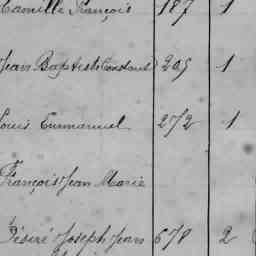 Camille François 187 1
Jean Baptiste Constant 205 1
Louis Emmanuel 272 1
François Jean Marie
Désiré Joseph Jean 678 2